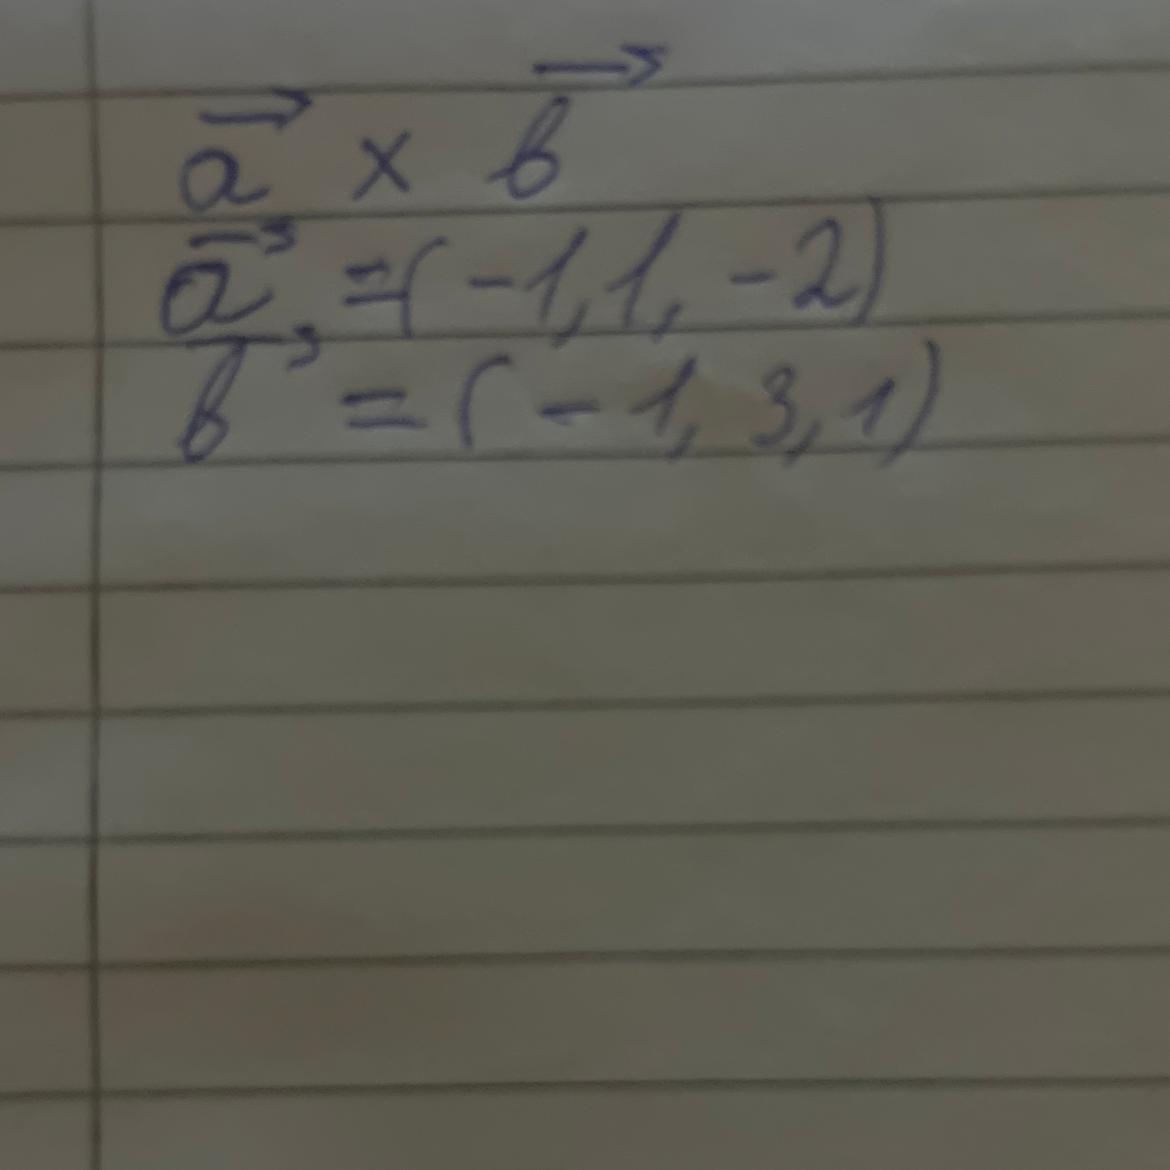 a⃗ × b⃗
a⃗ = (-1, 1, -2)
b⃗ = (-1, 3, 1)